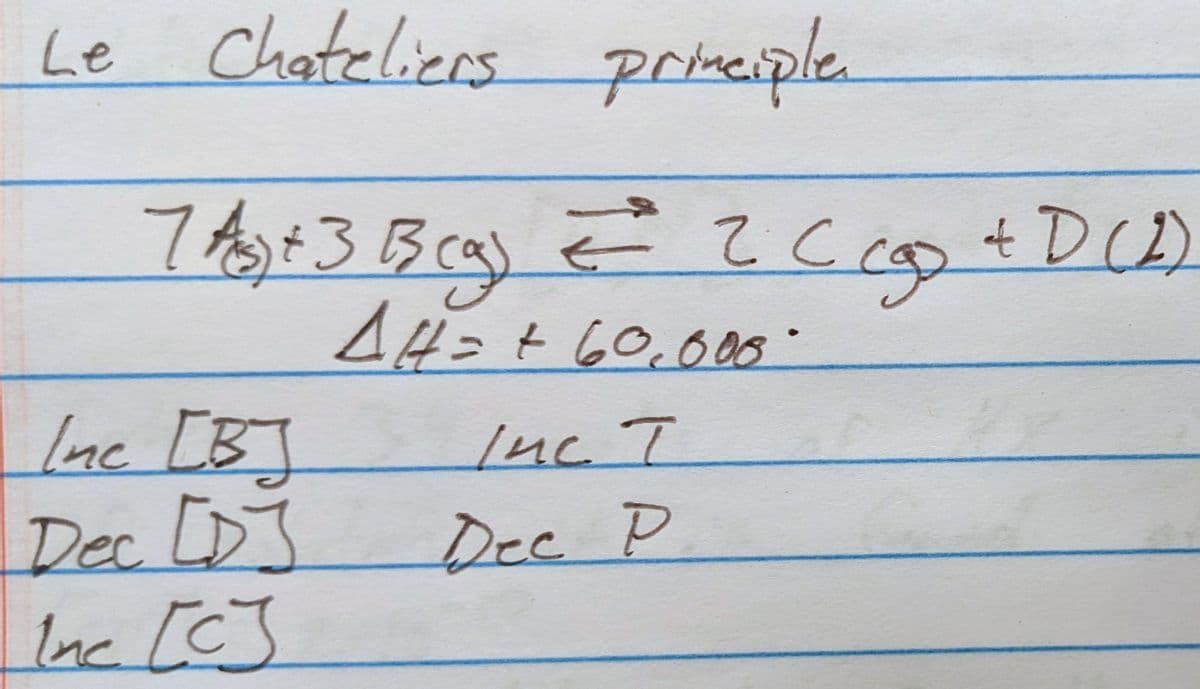 Le Chateliers principle
7 A(s) + 3 B(g) ⇄ 2 C(g) + D(l)
ΔH = + 60,000
Inc [B] Inc T
Dec [D] Dec P
Inc [C]